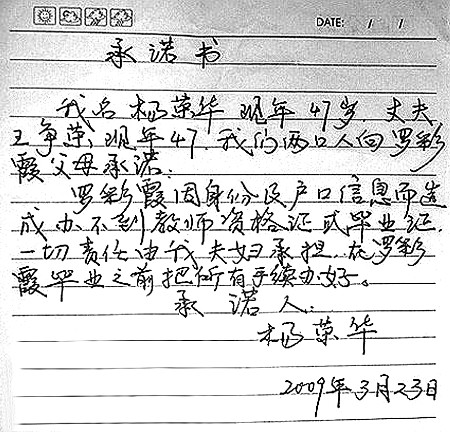 DATE: / /
承诺书
我名杨荣华 现年47岁.丈夫
王争荣,现年47.我们两口人向罗彩
霞父母承诺:
罗彩霞因身份及户口信息而造
成办不到教师资格证或毕业证.
一切责任由我夫妇承担.在罗彩
霞毕业之前把所有手续办好。
承诺人:
杨荣华
2009年3月23日